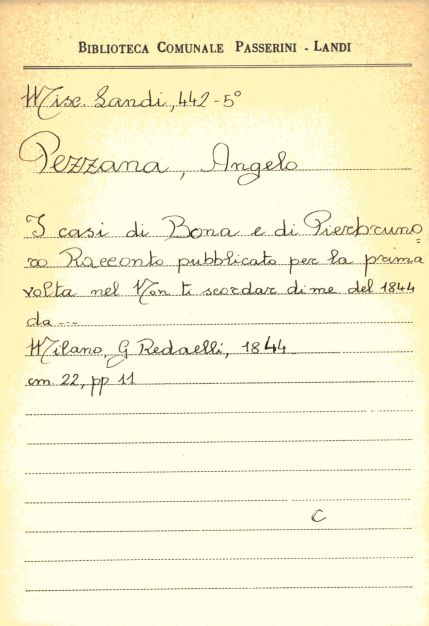 BIBLIOTECA COMUNALE PASSERINI - LANDI
Misc. Landi, 442-5°
Pezzana, Angelo
I casi di Bona e di Pierbruno=
ro Racconto pubblicato per la prima
volta nel Non ti scordar di me del 1844
da ---
Milano, G Redaelli, 1844
cm. 22, pp 11
C